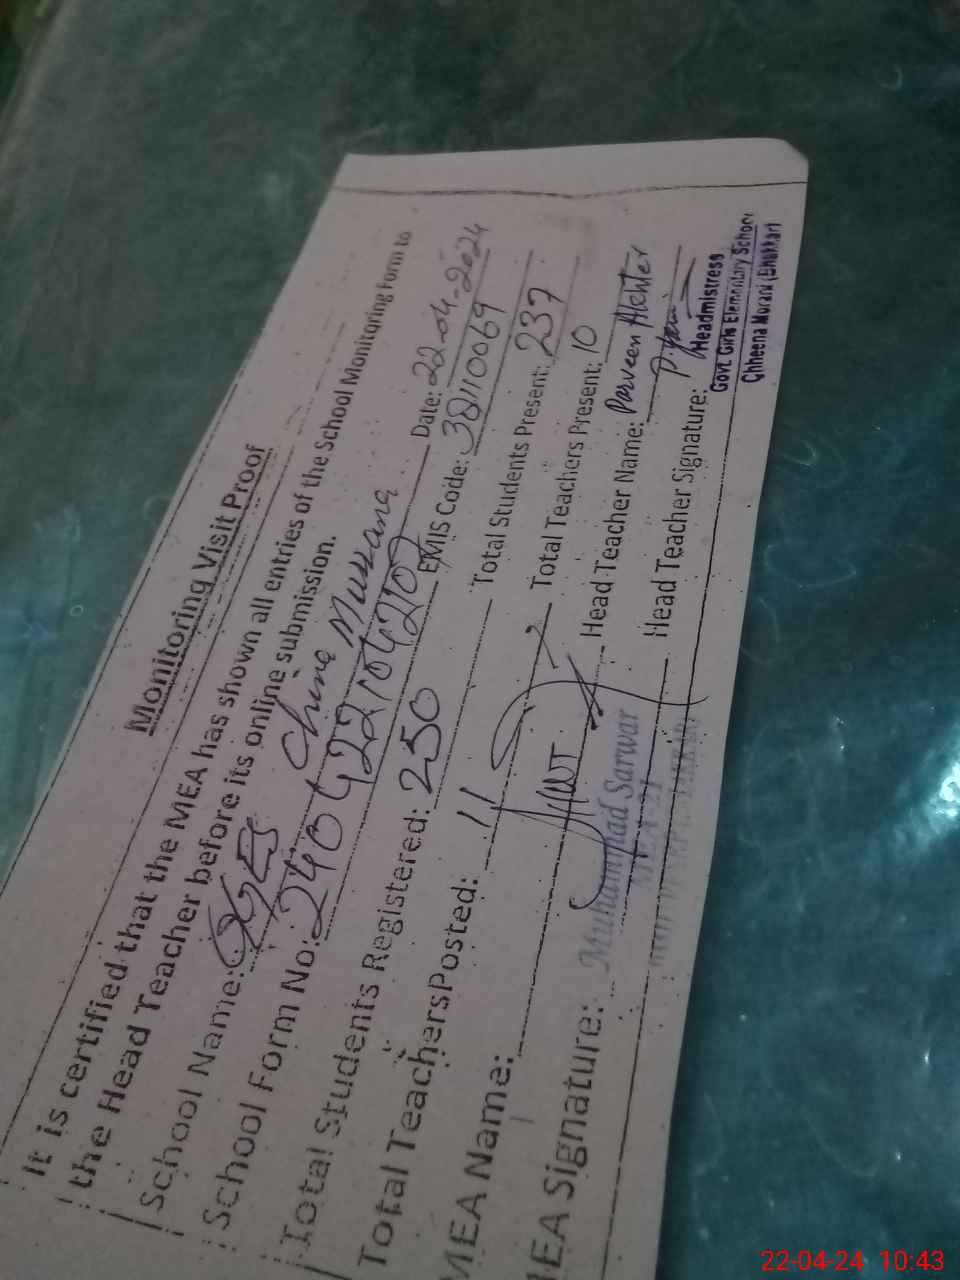 Monitoring Visit Proof
It is certified that the MEA has shown all entries of the School Monitoring Form to
the Head Teacher before its online submission.
School Name: GGES Date: 22-04-2024
School Form No: EMIS Code: 38110069
Total Students Registered: 250 Total Students Present: 237
Total Teachers Posted: 11 Total Teachers Present: 10
MEA Name: Head Teacher Name: Parveen Akhter
MEA Signature: Muhammad Sarwar Head Teacher Signature:
Headmistress
Govt. Girls Elementary School
Chheena Morani (Bhakkar)
22-04-24 10:43